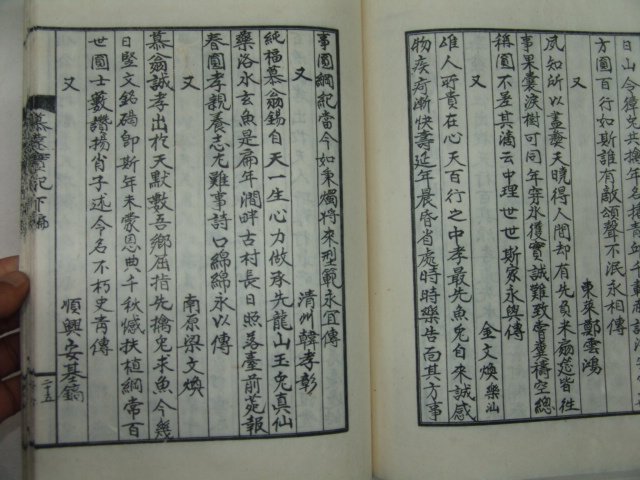 日山令德先共擒年
方圓百行如斯誰有敵頌聲不泯永相傳
東萊鄭雲鴻
又
夙知所以盡養天曉得人間却有先負米扇怹皆徃
事果囊淚樹可同年穿氷獲實誠難致常糞禱空總
稱圓不差其滴云中理世世斯家永與傳
金文煥 樂汕
又
雄人所貴在心天百行之中孝最先魚兔自來誠感
物疾疴漸快壽延年晨昏省處時時樂告面其方事
事圓綱紀當今如秉燭將來型範永宜傳
清州韓孝彰
又
純福慕翁錫自天一生心力做承先龍山王兔真仙
藥洛水玄魚是扁年澗畔古村長日照落臺前苑報
春圓孝親養志尤難事詩口綿綿永以傳
南原梁文煥
又
慕翁誠孝出於天默數吾鄉屈指先擒兔求魚今幾
日竪文銘碣卽斯年未蒙恩典千秋憾扶植綱常百
世圓士藪讚揚肖子述今名不朽史靑傳
順興安基鎬
又
下編
二十五